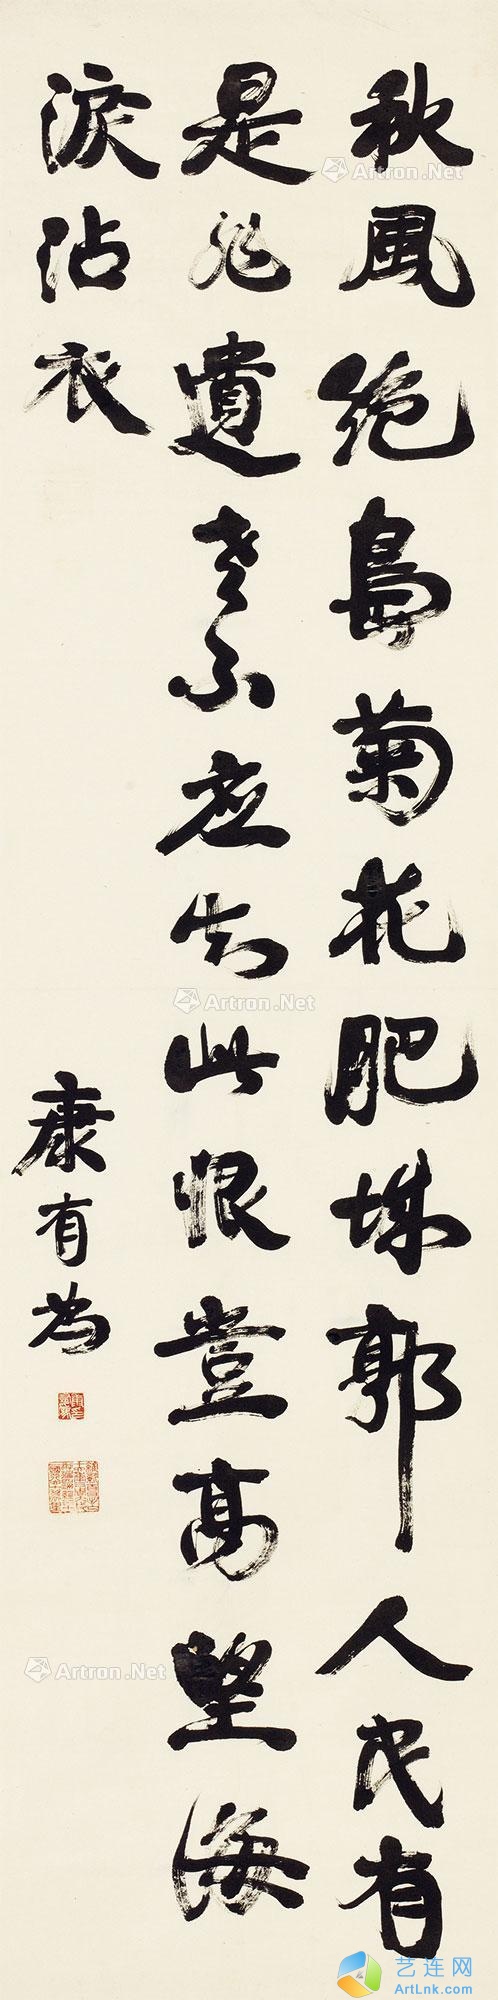 秋風絶島菊花肥城郭人民有
是非遺老不應知此恨登高望海
淚沾衣
康有為
Artron.Net
Artron.Net
Artron.Net
Artron.Net
艺连网
ArtLnk.com